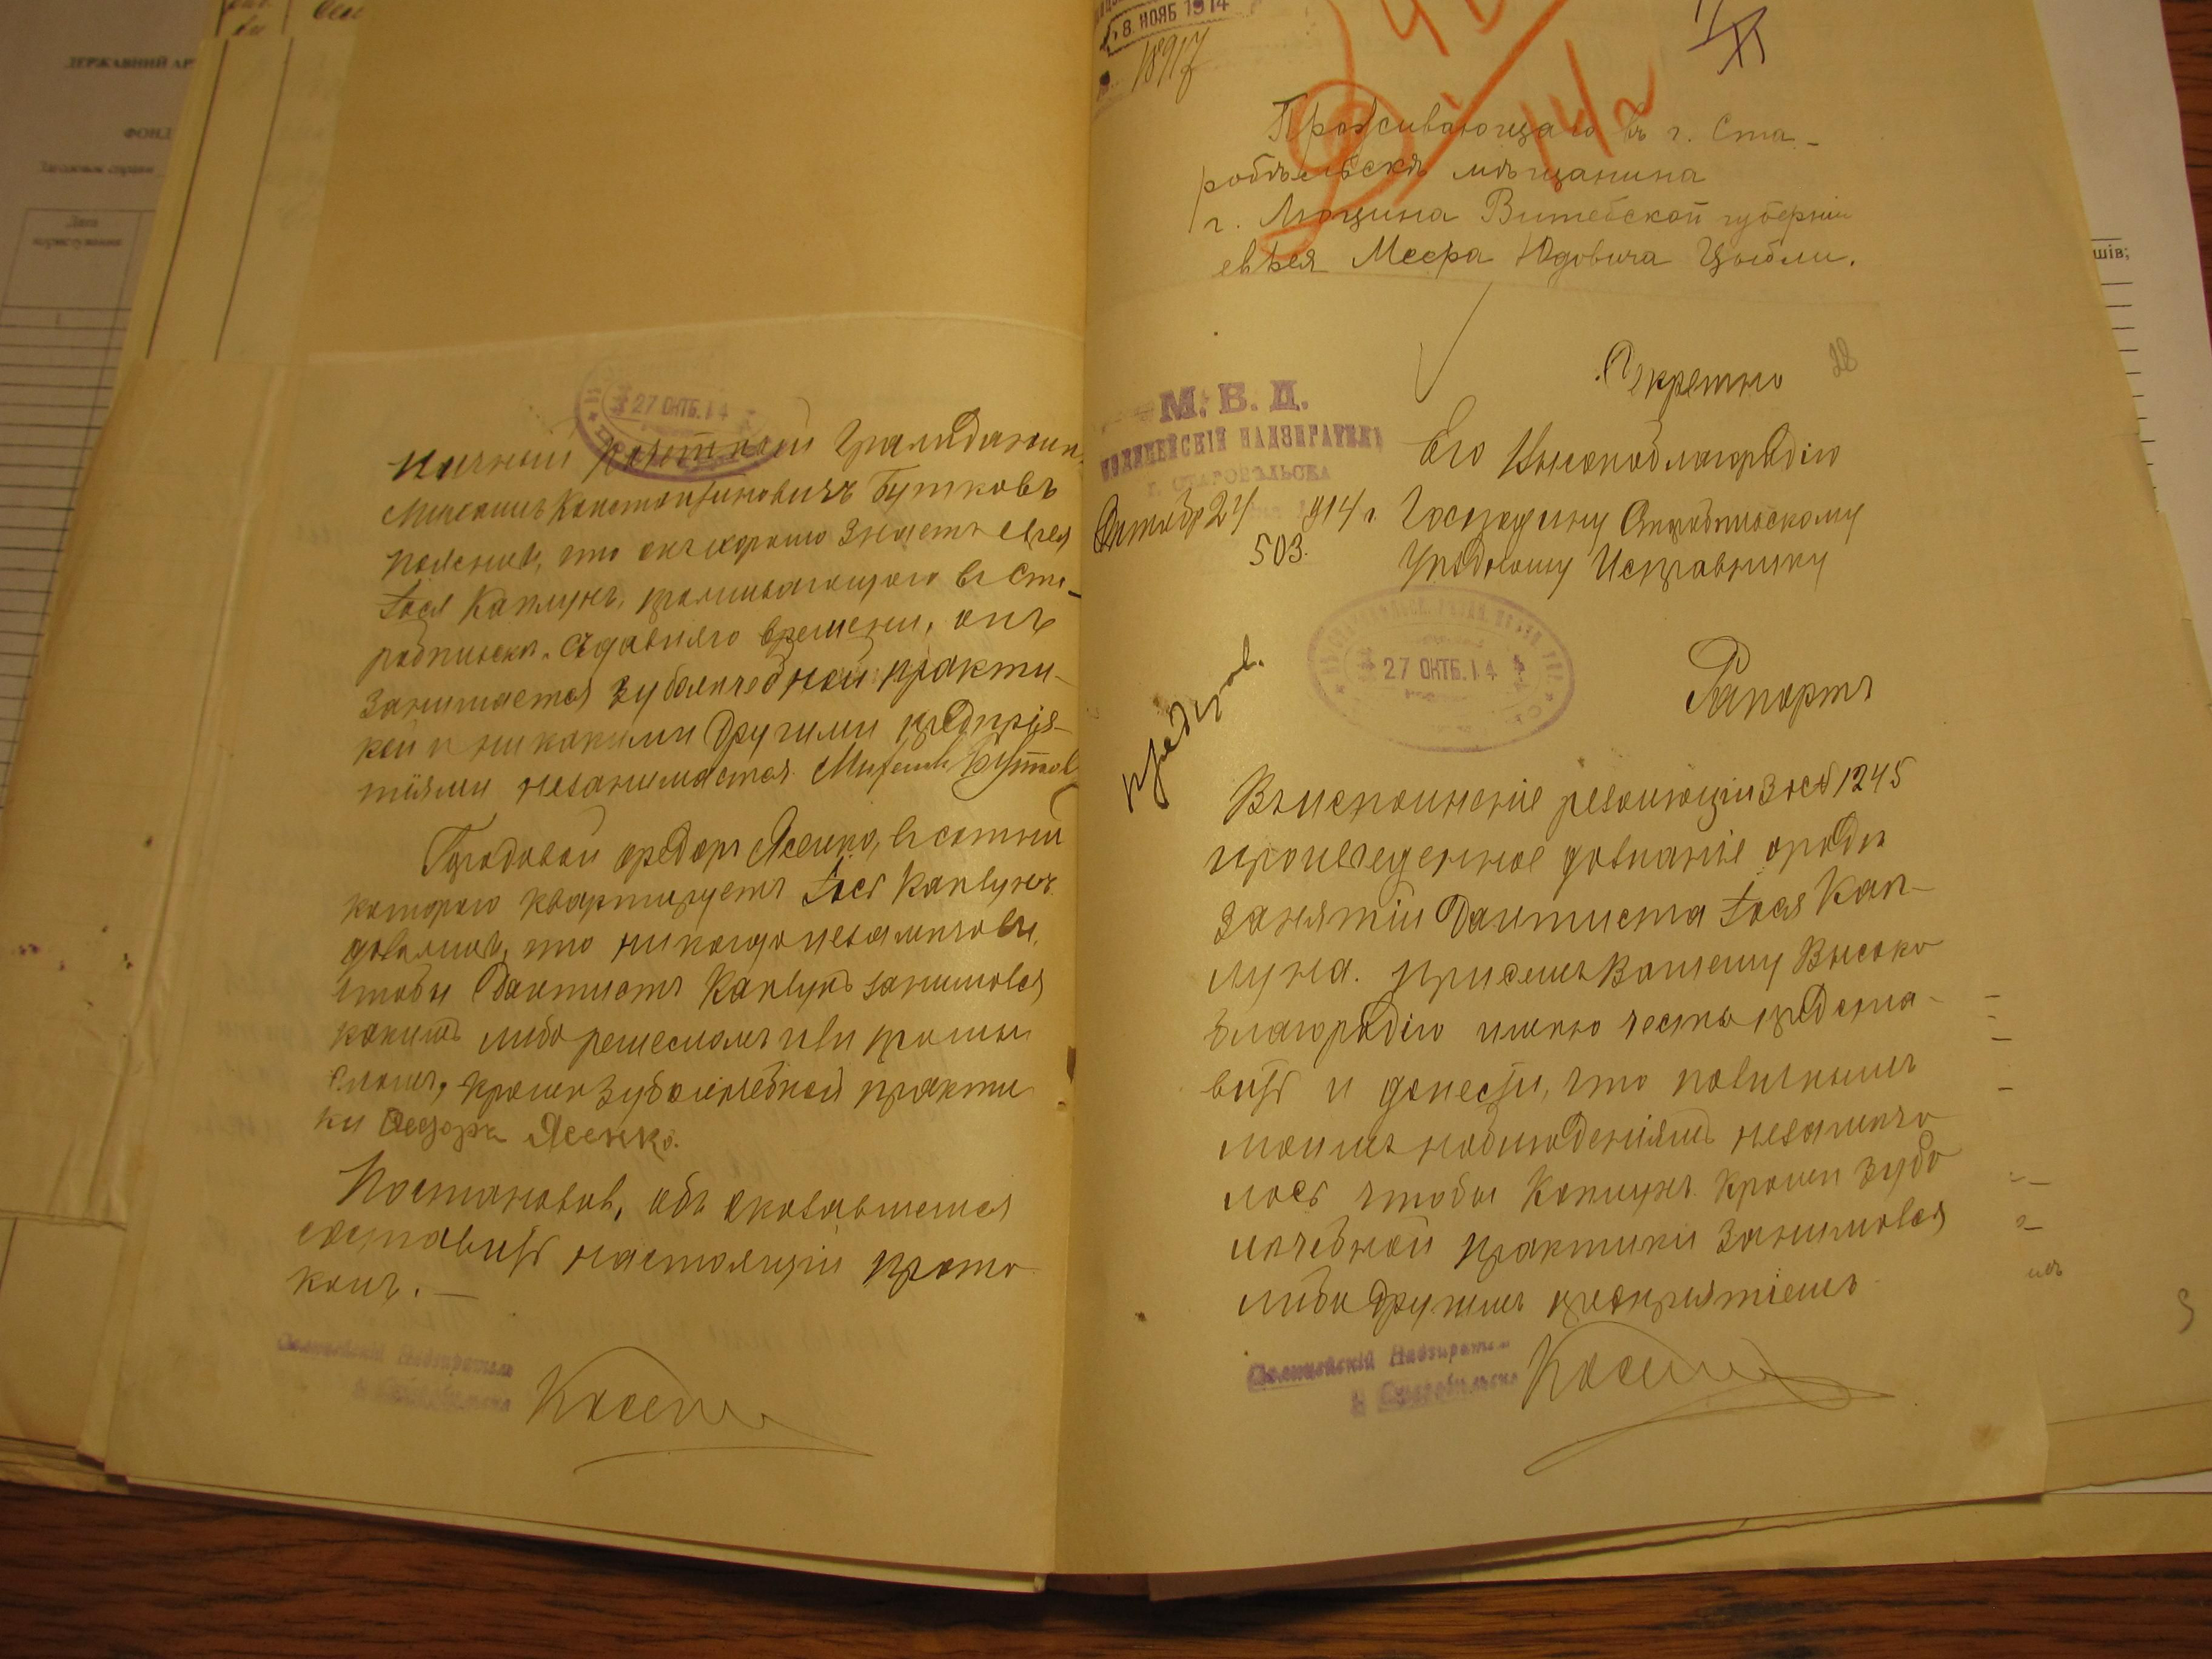 ДЕРЖАВНИЙ АР
ФОНД
Дата
користування
27 ОКТБ.14
Личный почетный Гражданинъ
Михаилъ Константиновичъ Бутковъ
пояснилъ, что онъ хорошо знаетъ еврея
Іося Каплунъ, проживающаго въ Ста-
робѣльскѣ съ давняго времени, онъ
занимается зуболѣчебной практи-
кой и никакими другими предпрія-
тіями незанимается. Михаилъ Бутковъ
Городовой Федоръ Ясенко, въ
которого квартируетъ Іось Каплунъ
дозналъ, что никогда незамѣчалъ,
чтобы Дантистъ Каплунъ занимался
какимъ либо ремесломъ или промы
сломъ, кромѣ зуболѣчебной практи
ки Федоръ Ясенко.
Постановилъ, объ оказавшемся
составить настоящій прото
колъ. —
Полицейскій Надзиратель
г. Старобѣльска
8 НОЯБ 1914
18917
Проживающаго въ г. Ста-
робѣльскѣ мѣщанина
г. Люцина Витебской губерніи
еврея Меера Юдовича Цыбли.
28
Секретно
М. В. Д.
ПОЛИЦЕЙСКІЙ НАДЗИРАТЕЛЬ
г. СТАРОБѢЛЬСКА
Октября 24 1914 г.
503.
Его Высокоблагородію
Господину Старобѣльскому
Уѣздному Исправнику
27 ОКТБ.14
Рапортъ
Въ исполненіе резолюціи за № 1245
произведенное дознаніе о родѣ
занятій Дантиста Іося Кап-
луна. при семъ Вашему Высоко
благородію имѣю честь предста-
вить и донести, что по личнымъ
моимъ наблюденіямъ незамѣча
лось чтобы Каплунъ кромѣ зубо
лѣчебной практики занимался
либо другимъ предпріятіемъ
Полицейскій Надзиратель
г. Старобѣльска
шів;